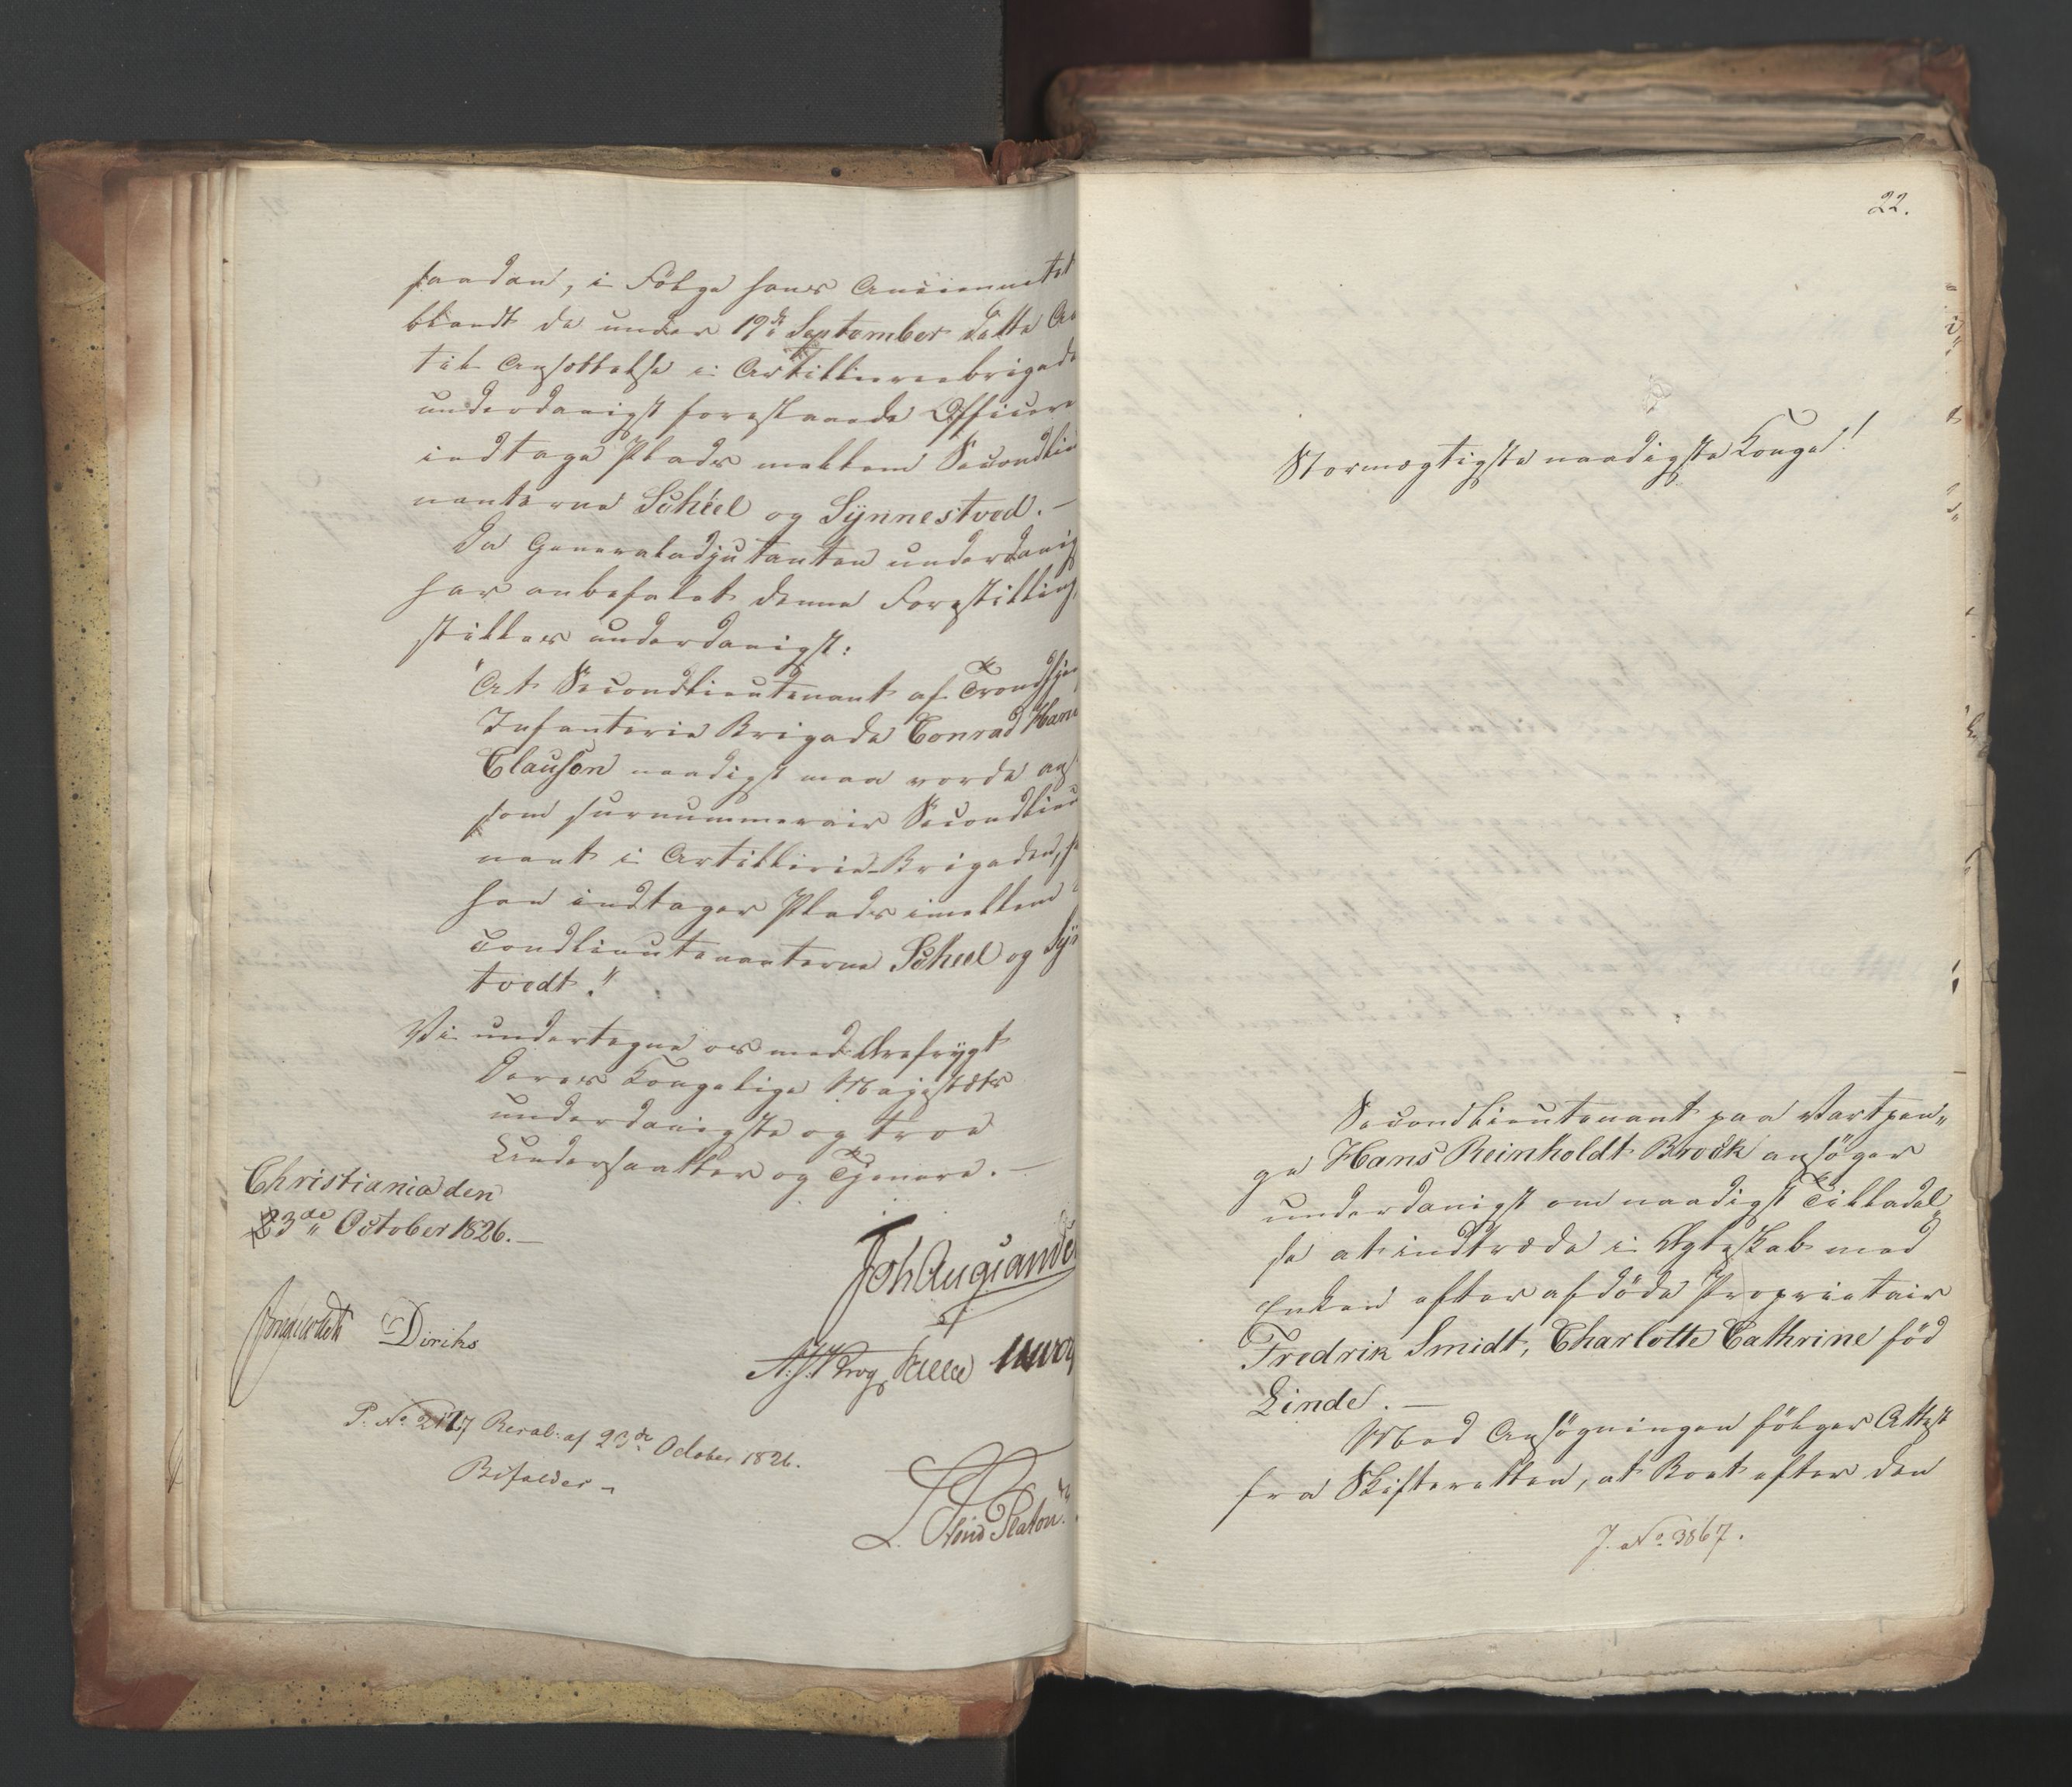 saadan, i Følge hans Anciennetet
blandt de under 19de September dette
til Ansættelse i Artilleriebrigade
underdanigst foreslaaede Officerer
indtage Plads mellem Secondlieu
nanterne Scheel og Synnestved. —
Da Generaladjutanten underdanig
har anbefalet denne Forestilling,
stilles underdanigst:
"At Secondlieutenant af Trondhjem
Infanterie Brigade Conrad Hans
Clauson naadigst maa vorde ans
som surnummerair Secondlieu
nant i Artillerie-Brigaden,
han indtager Plads imellem
condlieutenanterne Scheel og Syn
tvedt."
Vi undertegne os med Ærefrygt
Deres Kongelige Majestæts
underdanigste og troe
Undersaatter og Tjenere. —
Christiania den
23de October 1826. —
Diriks
P. No. Resol: af 23de October 1826.
Bifaldes —
22.
Stormægtigste naadigste Konge!
Secondlieutenant paa Vartpen„
ge Hans Reinholdt Brock ansøger
underdanigst om naadigst Tilladel„
se at indtræde i Ægteskab med
Enken efter afdøde Proprietair
Fredrik Smidt, Charlotte Cathrine fød
Linde. —
Med Ansøgningen følger Attest
fra Skifteretten, at Boet efter den
J. No. 3867.